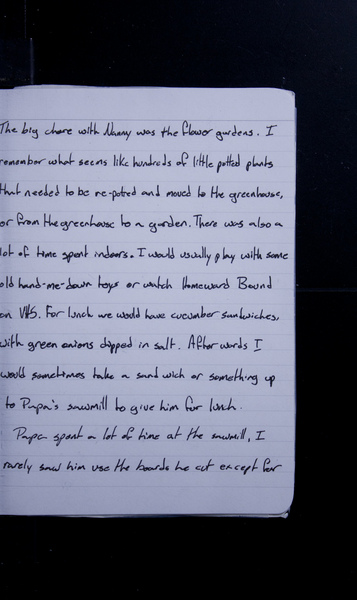 The big chore with Nanny was the flower gardens. I
remember what seems like hundreds of little potted plants
that needed to be re-potted and moved to the greenhouse,
or from the greenhouse to a garden. There was also a
lot of time spent indoors. I would usually play with some
old hand-me-down toys or watch Homeward Bound
on VHS. For lunch we would have cucumber sandwiches,
with green onions dipped in salt. Afterwords I
would sometimes take a sandwich or something up
to Papa's sawmill to give him for lunch.
Papa spent a lot of time at the sawmill, I
rarely saw him use the boards he cut except for